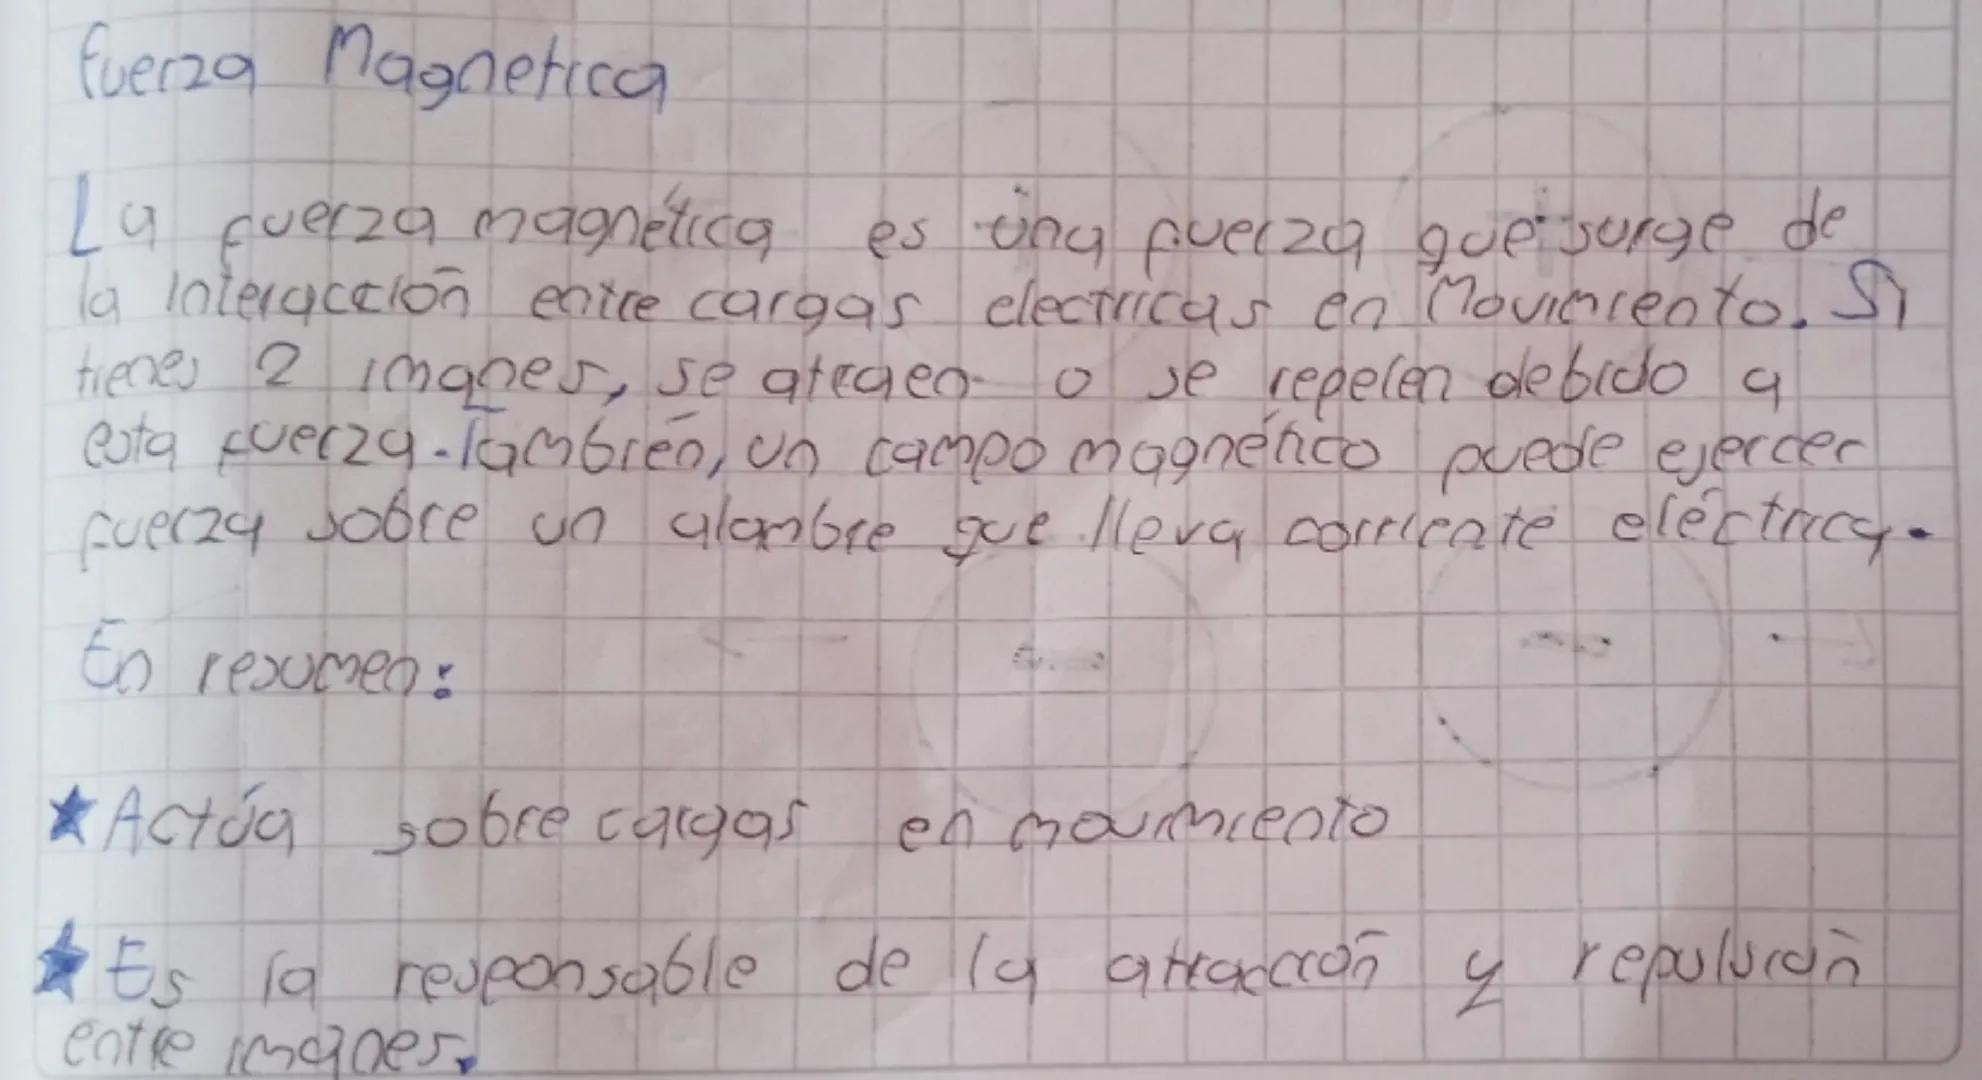 Fuerza Magnetica
La fuerza magnética es una fuerza que surge de
la interacción entre cargas electricas en Movimiento. Si
tienes 2 imanes, se atraen o se repelen debido a
esta fuerza. También, un campo magnético puede ejercer
fuerza sobre un alambre que lleva corriente eléctrica.
En resumen:
★ Actúa sobre cargas en movimiento
★ Es la responsable de la atracción y repulsión
entre imanes.